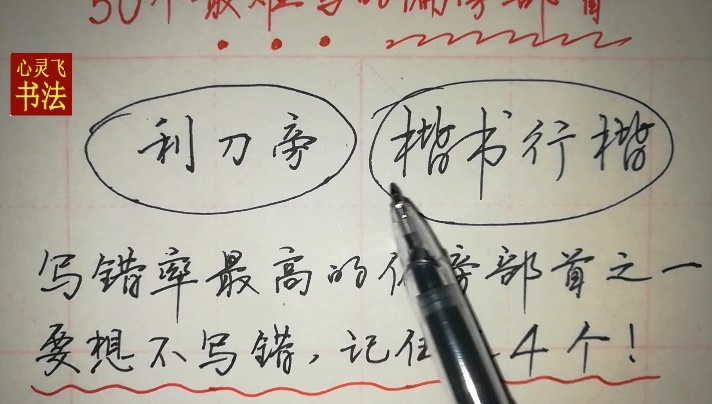 50个最难写的偏旁部首
心灵飞
书法
利刀旁
楷书行楷
写错率最高的偏旁部首之一
要想不写错，记住4个！